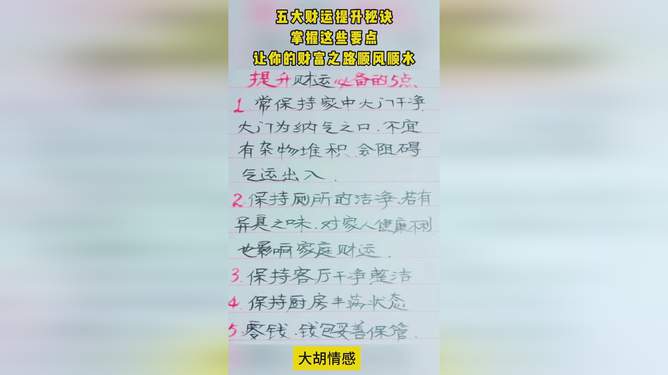 五大财运提升秘诀
掌握这些要点
让你的财富之路顺风顺水
提升财运必备的5点
1. 常保持家中大门干净,
大门为纳气之口.不宜
有杂物堆积.会阻碍
气运出入.
2. 保持厕所的洁净.若有
异臭之味.对家人健康不利
也影响家庭财运.
3. 保持客厅干净整洁
4. 保持厨房丰满状态
5. 零钱.钱包妥善保管.
大胡情感